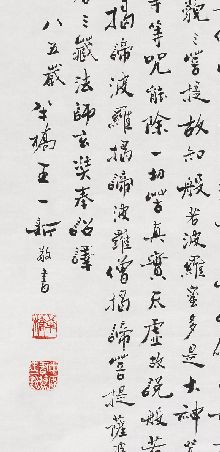 藐三菩提故知般若波羅蜜多是大神咒
等等咒能除一切苦真實不虛故說般若
揭諦波羅揭諦波羅僧揭諦菩提薩婆
三藏法師玄奘奉詔譯
八五歲 橋王一 敬書